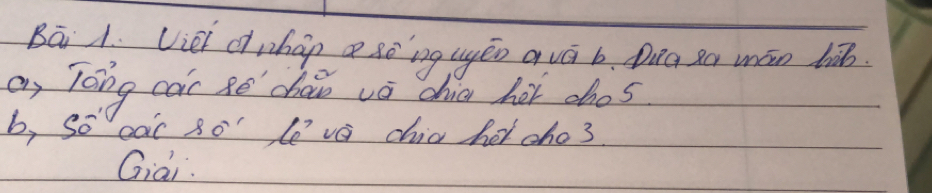 Bài 1. Viết ct nhập 2 số nguyên a và b. Đưa ra màn hình.
a, Tổng các số chẵn và chia hết cho 5.
b, Số các số lẻ và chia hết cho 3.
Giải.